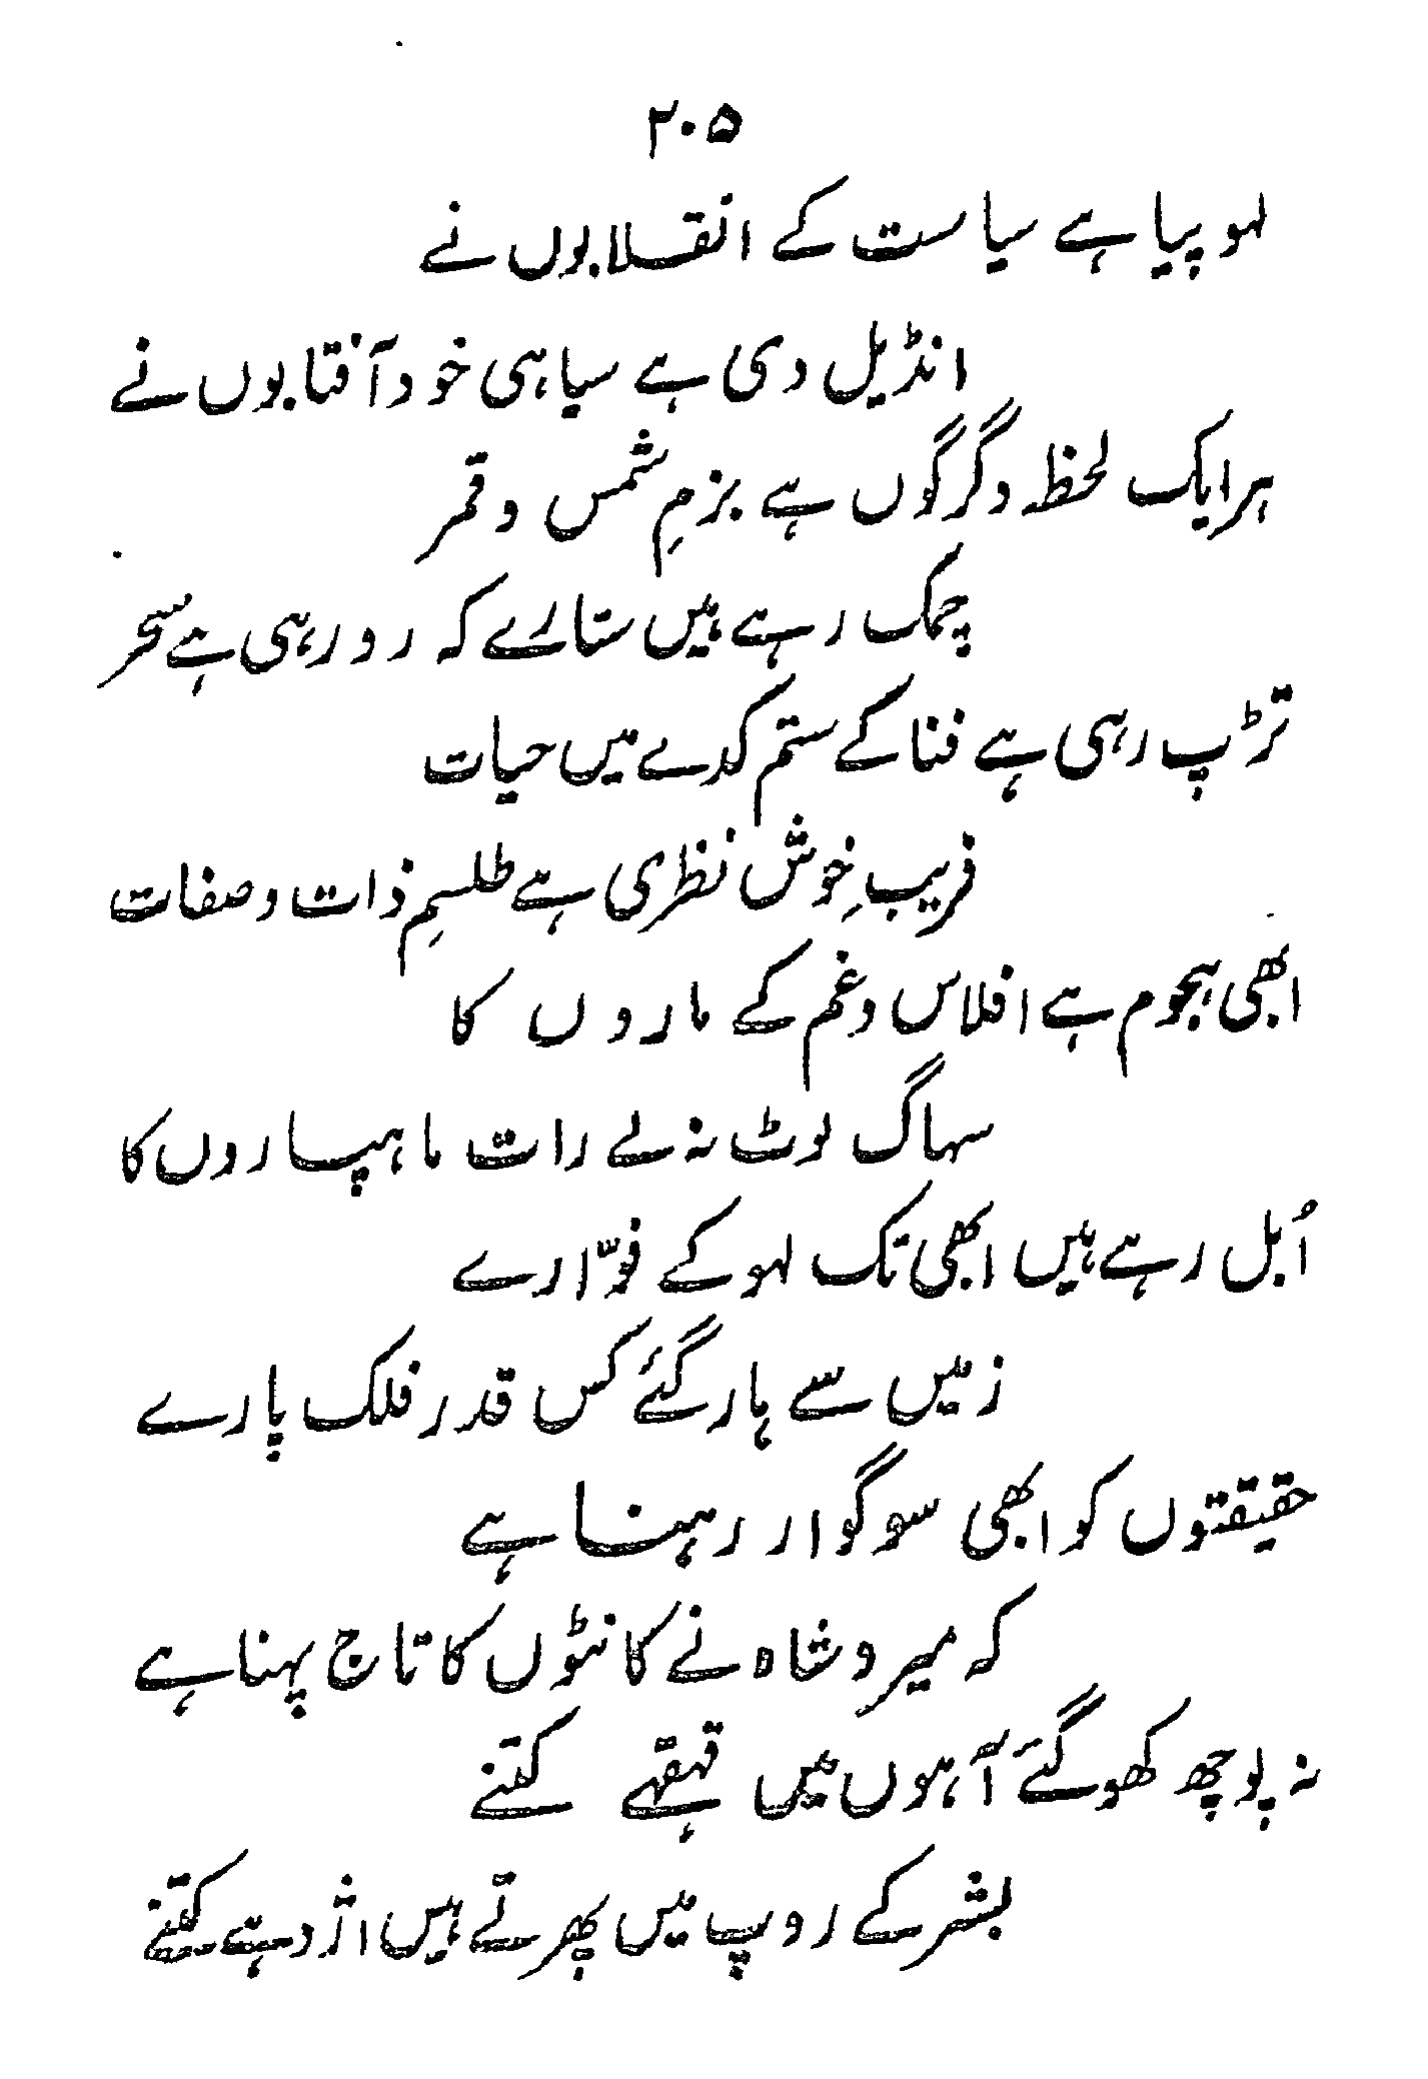 ۲۰۵
لہو پیا ہے سیاست کے انقلابوں نے
انڈیل دی ہے سیاہی خود آفتابوں نے
ہر ایک لحظہ دگرگوں ہے بزمِ شمس و قمر
چمک رہے ہیں ستارے کہ رو رہی ہے سحر
تڑپ رہی ہے فنا کے ستم کدے میں حیات
فریبِ خوش نظری ہے طلسمِ ذات و صفات
ابھی ہجوم ہے افلاس و غم کے ماروں کا
سہاگ لوٹ نہ لے رات ماہپاروں کا
اُبل رہے ہیں ابھی تک لہو کے فوّارے
زمیں سے ہار گئے کس قدر فلک پارے
حقیقتوں کو ابھی سوگوار رہنا ہے
کہ میر و شاہ نے کانٹوں کا تاج پہنا ہے
نہ پوچھ کھو گئے آہوں میں قہقہے کتنے
بشر کے روپ میں پھرتے ہیں اژدہے کتنے